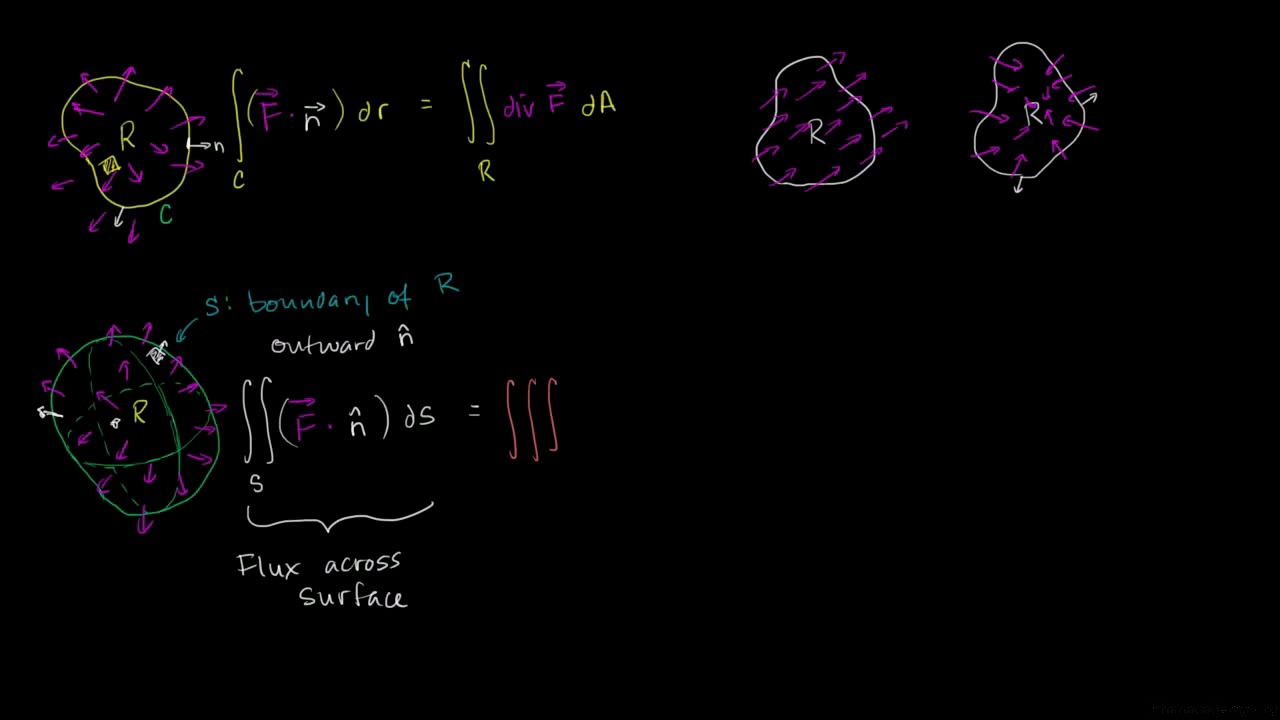 R
n
C
∫_C (F⃗ · n⃗) dr = ∬_R div F⃗ dA
R
R
S: boundary of R
outward n̂
R
∬_S (F⃗ · n̂) dS = ∭
Flux across
surface